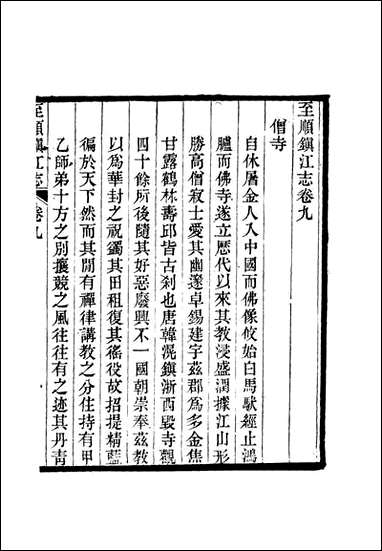 至順鎮江志卷九
僧寺
自休屠金人入中國而佛像攸始白馬馱經止鴻
臚而佛寺遂立歷代以來其教浸盛潤據江山形
勝高僧寂士愛其幽邃卓錫建宇茲郡為多金焦
甘露鶴林壽邱皆古刹也唐韓滉鎮浙西毀寺觀
四十餘所後隨其好惡廢興不一國朝崇奉茲教
以為華封之祝蠲其田租復其徭役故招提精藍
徧於天下然而其閒有禪律講教之分住持有甲
乙師弟十方之別攘競之風往往有之迹其丹青
至順鎮江志
卷九